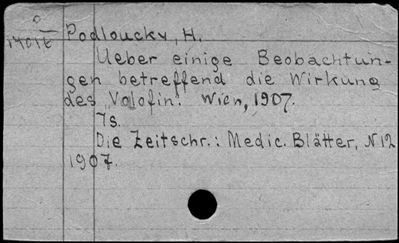 Podloucky, H.
Ueber einige Beobachtun-
gen betreffend die Wirkung
des Valofin. Wien, 1907.
7s.
Die Zeitschr.: Medic. Blätter, N 12
1907.